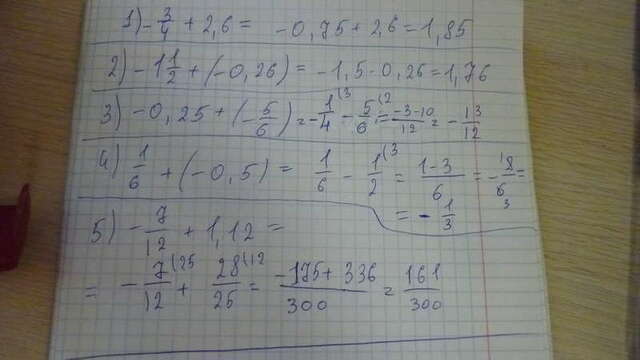 1) - 3/4 + 2,6 = -0,75 + 2,6 = 1,85
2) - 1 1/2 + (-0,26) = -1,5 - 0,26 = 1,76
3) -0,25 + (- 5/6) = - 1/4 (3 - 5/6 (2 = -3-10/12 = - 13/12
4) 1/6 + (-0,5) = 1/6 - 1/2 (3 = 1-3/6 = - =
= - 1/3
5) - 7/12 + 1,12 =
= - 7/12 (25 + 28/25 (12 = -175 + 336/300 = 161/300